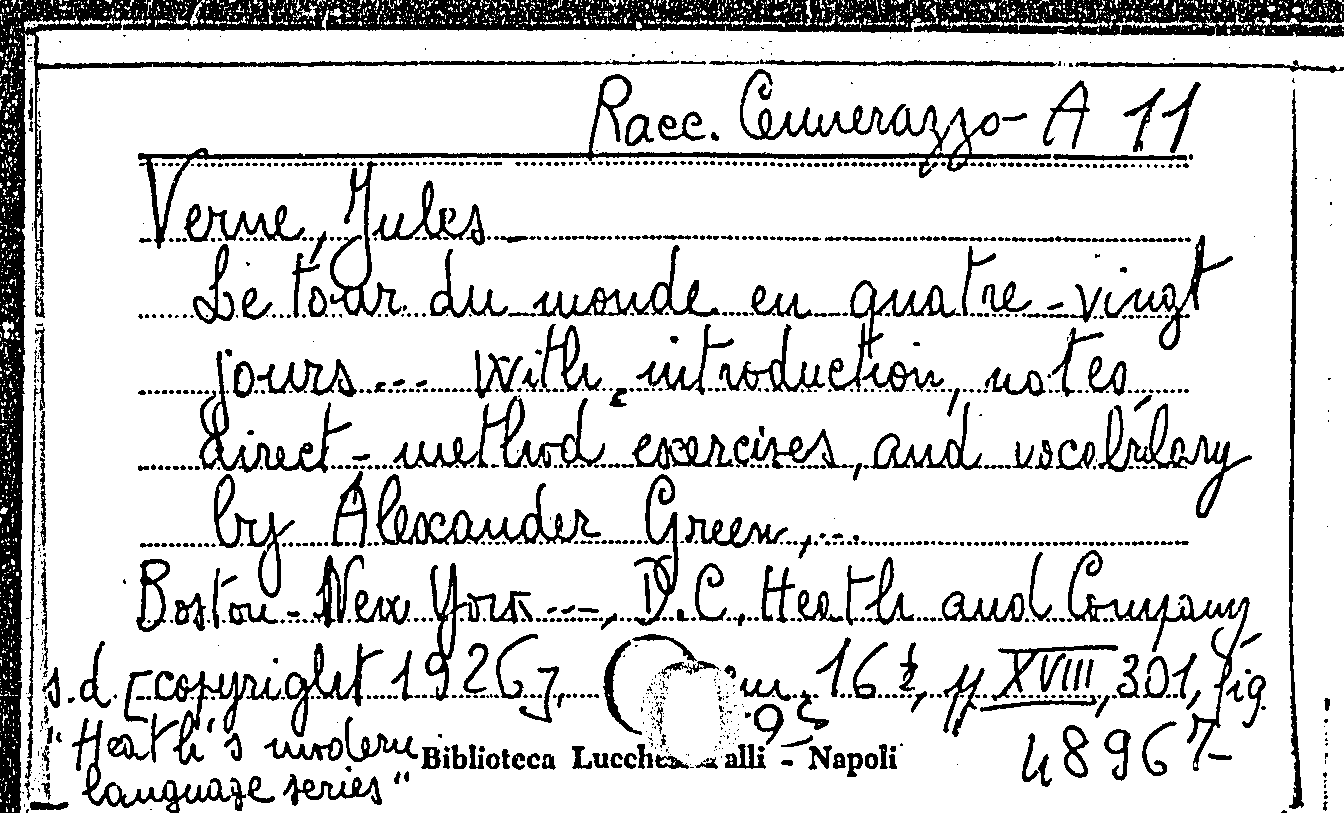 Racc. Cennerazzo - A 11
Verne, Jules_
Le tour du monde en quatre-vingt
jours... With introduction, notes,
direct-method exercises, and vocabulary
by Alexander Green,...
Boston-New York---, D.C. Heath and Company
s.d. [copyright 1926], 16½, pp XVIII, 301, fig.
"Heath's modern
language series"
Biblioteca Lucchesi Palli - Napoli
48967-